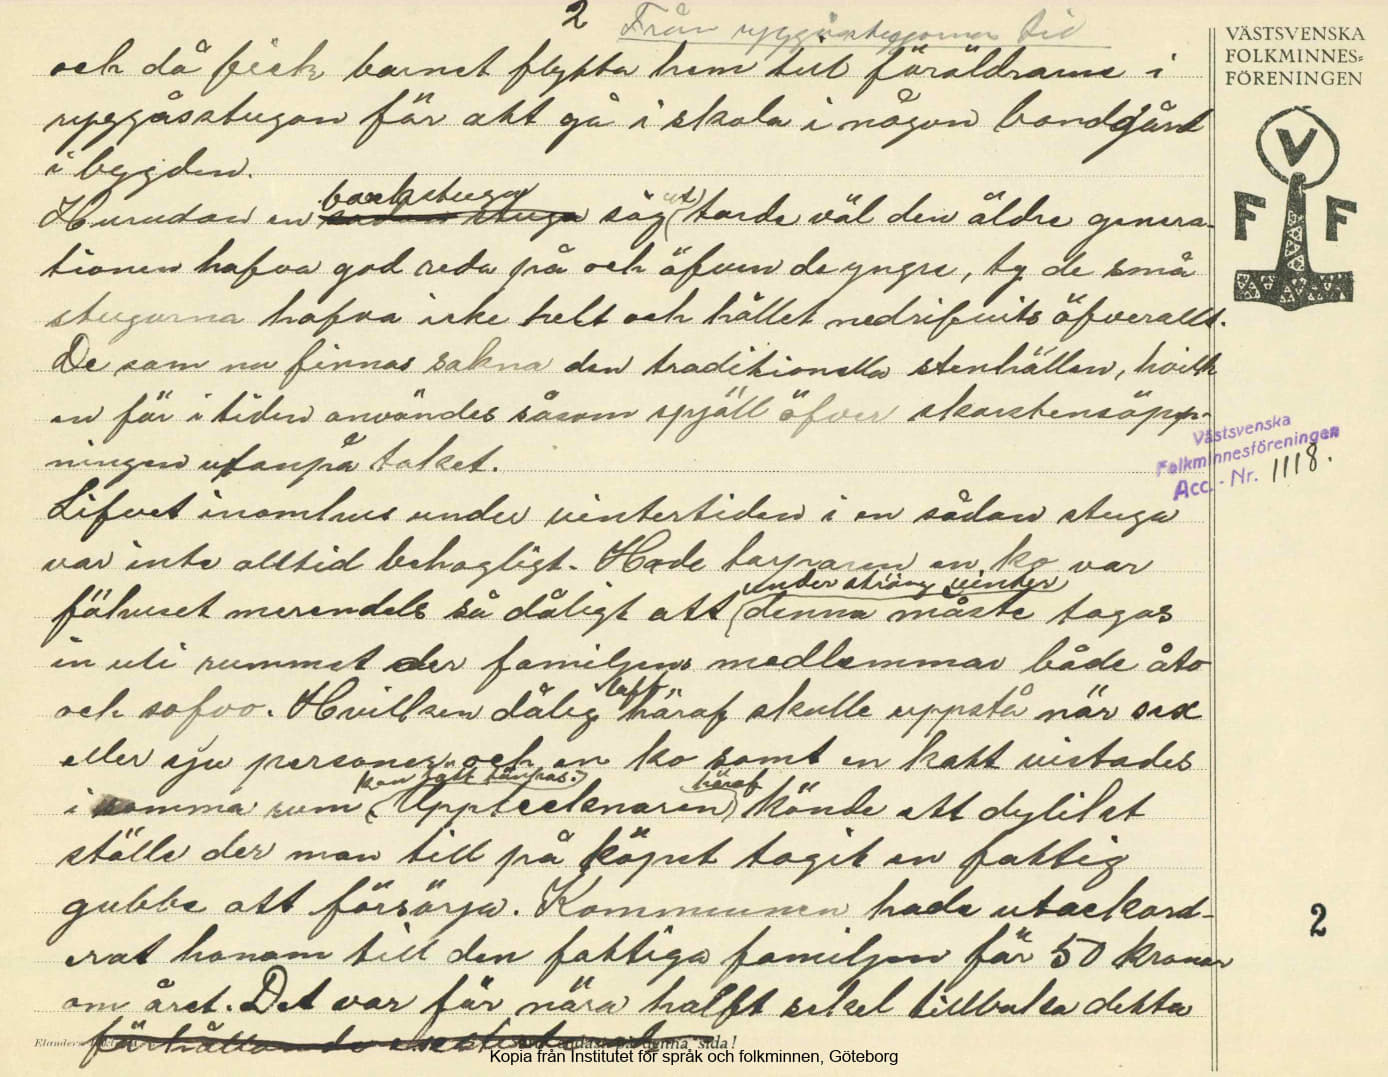 2 Från ryggåsstugornas tid
VÄSTSVENSKA
FOLKMINNES-
FÖRENINGEN
V
F F
och då fick barnet flytta hem till föräldrarne i
ryggåsstugan för att gå i skola i någon bondgård
i bygden.
Hurudan en backstuga såg ut torde väl den äldre genera-
tionen hafva god reda på och äfven de yngre, ty de små
stugorna hafva icke helt och hållet nedrifvits öfverallt.
De som nu finnas sakna den traditionella stenhällen, hvilk
en för i tiden användes såsom spjäll öfver skorstensöpp-
ningen utanpå taket.
Västsvenska
Folkminnesföreningen
Acc. - Nr. 1118.
Lifvet inomhus under vintertiden i en sådan stuga
var inte alltid behagligt. Hade torparen en ko var
under sträng vinter
fähuset merendels så dåligt att denna måste tagas
in uti rummet der familjens medlemmar både åto
och sofvo. Hvilken dålig luft häraf skulle uppstå när sex
eller sju personer och en ko samt en katt vistades
kan lätt tänkas. häraf
i samma rum Upptecknaren kände ett dylikt
ställe der man till på köpet tagit en fattig
gubbe att försörja. Kommunen hade utackord-
erat honom till den fattiga familjen för 50 kronor
om året. Det var för nära halft sekel tillbaka detta
förhållande existerade
denna sida!
2
Kopia från Institutet för språk och folkminnen, Göteborg